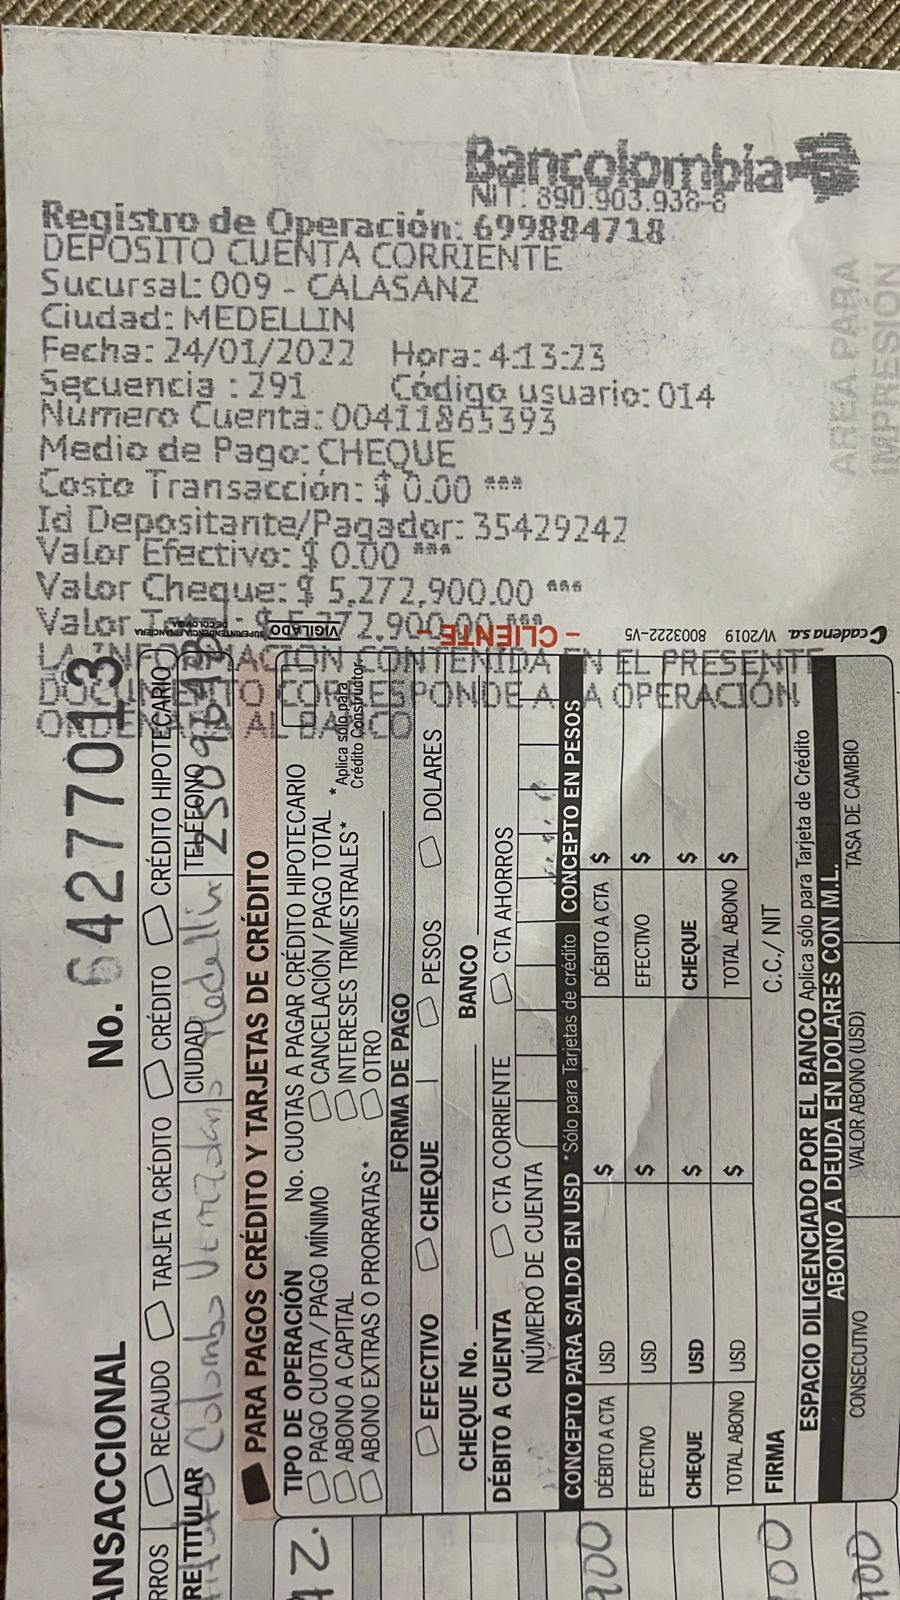 Bancolombia
NIT: 890.903.938-8
Registro de Operación: 699884718
DEPOSITO CUENTA CORRIENTE
Sucursal: 009 - CALASANZ
Ciudad: MEDELLIN
Fecha: 24/01/2022 Hora: 4:13:23
Secuencia : 291 Código usuario: 014
Número Cuenta: 00411865393
Medio de Pago: CHEQUE
Costo Transacción: $ 0.00 ***
Id Depositante/Pagador: 35429242
Valor Efectivo: $ 0.00 ***
Valor Cheque: $ 5,272,900.00 ***
Valor Total: $ 5,272,900.00 ***
LA INFORMACIÓN CONTENIDA EN EL PRESENTE
DOCUMENTO CORRESPONDE A LA OPERACIÓN
ORDENADA AL BANCO
ÁREA PARA
IMPRESIÓN
ANSACCIONAL No. 642777013
RROS RECAUDO TARJETA CRÉDITO CRÉDITO CRÉDITO HIPOTECARIO
RE TITULAR CIUDAD TELÉFONO
Colombo Medellín
SUPERINTENDENCIA FINANCIERA
DE COLOMBIA
VIGILADO
- CLIENTE -
cadena s.a. VI/2019 8003222-V5
PARA PAGOS CRÉDITO Y TARJETAS DE CRÉDITO
TIPO DE OPERACIÓN No. CUOTAS A PAGAR CRÉDITO HIPOTECARIO
PAGO CUOTA / PAGO MÍNIMO CANCELACIÓN / PAGO TOTAL
ABONO A CAPITAL INTERESES TRIMESTRALES*
ABONO EXTRAS O PRORRATAS* OTRO
* Aplica sólo para
Crédito Constructor
FORMA DE PAGO
EFECTIVO CHEQUE PESOS DOLARES
CHEQUE No. BANCO
DÉBITO A CUENTA CTA CORRIENTE CTA AHORROS
NÚMERO DE CUENTA
CONCEPTO PARA SALDO EN USD *Sólo para Tarjetas de crédito CONCEPTO EN PESOS
DÉBITO A CTA USD $ DÉBITO A CTA $
EFECTIVO USD $ EFECTIVO $
CHEQUE USD $ CHEQUE $
TOTAL ABONO USD $ TOTAL ABONO $
FIRMA C.C./ NIT
ESPACIO DILIGENCIADO POR EL BANCO Aplica sólo para Tarjeta de Crédito
ABONO A DEUDA EN DOLARES CON M.L.
CONSECUTIVO VALOR ABONO (USD) TASA DE CAMBIO